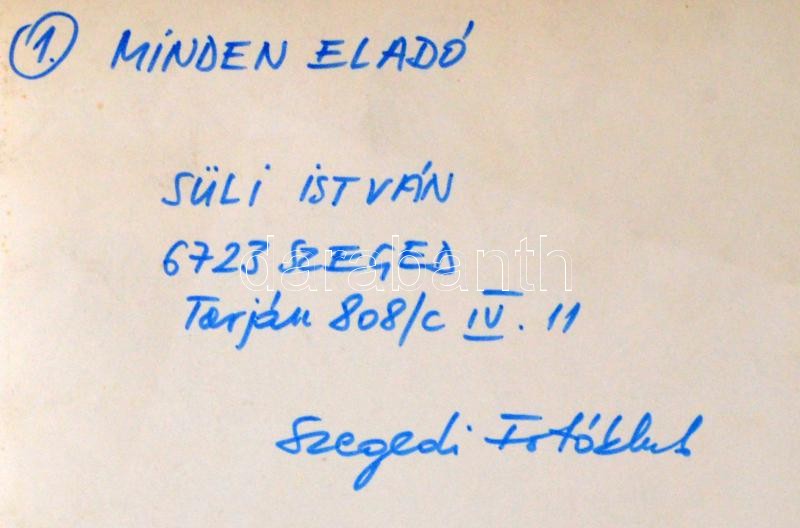 1. MINDEN ELADÓ
SÜLI ISTVÁN
6723 SZEGED
darabanth
Tarján 808/c IV. 11
Szegedi Fotóklub